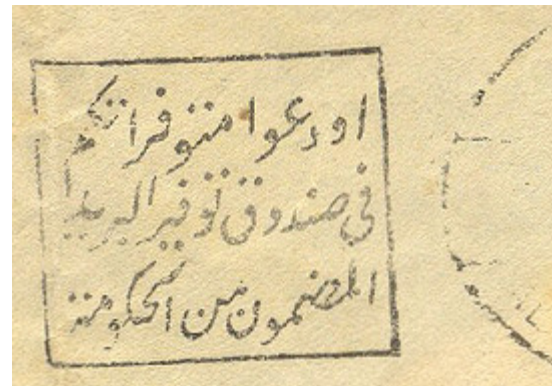 اودعوا متوفراتكم
في صندوق توفير البريد
المضمون من الحكومة